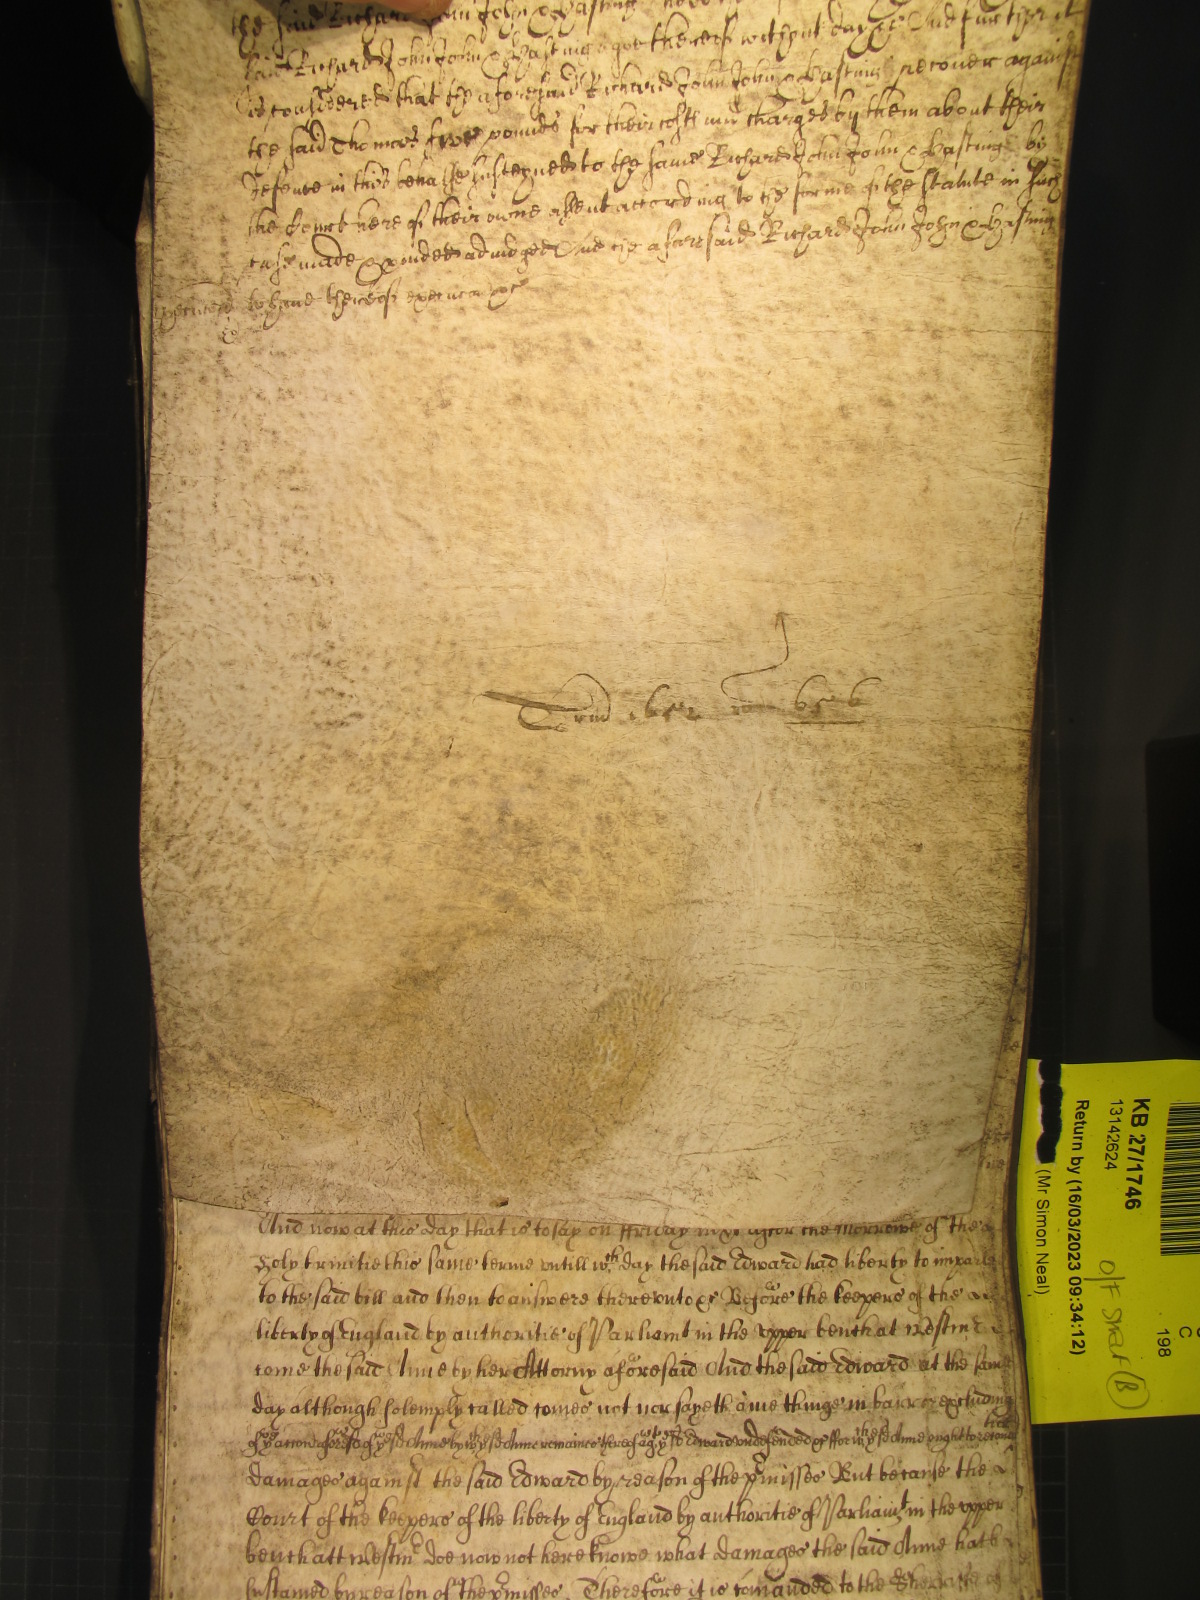 the said Richard John John & Hasting
said Richard John John & Hasting goe thereof without day &c And further it
is considered that the aforesaid Richard John John & Hasting recover against
the said Thomas five pounds for their costs and charges by them about their
defence in this behalfe susteyned to the same Richard John John & Hasting by
the Court here of their owne assent according to the forme of the Statute in such
case made & provided adiudged And the aforesaid Richard John John & Hasting
to have thereof execucon &c
Trin 1652
And now at this day that is to say on ffriday next after the morrowe of the
Holy trinitie this same terme untill wch day the said Edward had liberty to imparle
to the said bill and then to answere thereunto &c Before the keepers of the
liberty of England by authoritie of Parliamt in the upper bench at Westmr
come the said Anne by her Attorny aforesaid And the said Edward at the same
day although solemply called comes not nor sayeth anie thinge in barre or excluding
of ye accon aforesd of ye sd Anne by wch ye sd Anne remaines thereof agt ye sd Edward undefended &c ffor wch ye sd Anne ought to recover
damages against the said Edward by reason of the pmisses But because the
Court of the keepers of the liberty of England by authoritie of Parliamt in the upper
bench att Westmr doe now not here knowe what damages the said Anne hath
sustained by reason of the pmisses Therefore it is comanded to the Sheriffe of
KB 27/1746
13142624
Return by (16/03/2023 09:34:12)
(Mr Simon Neal)
198
C